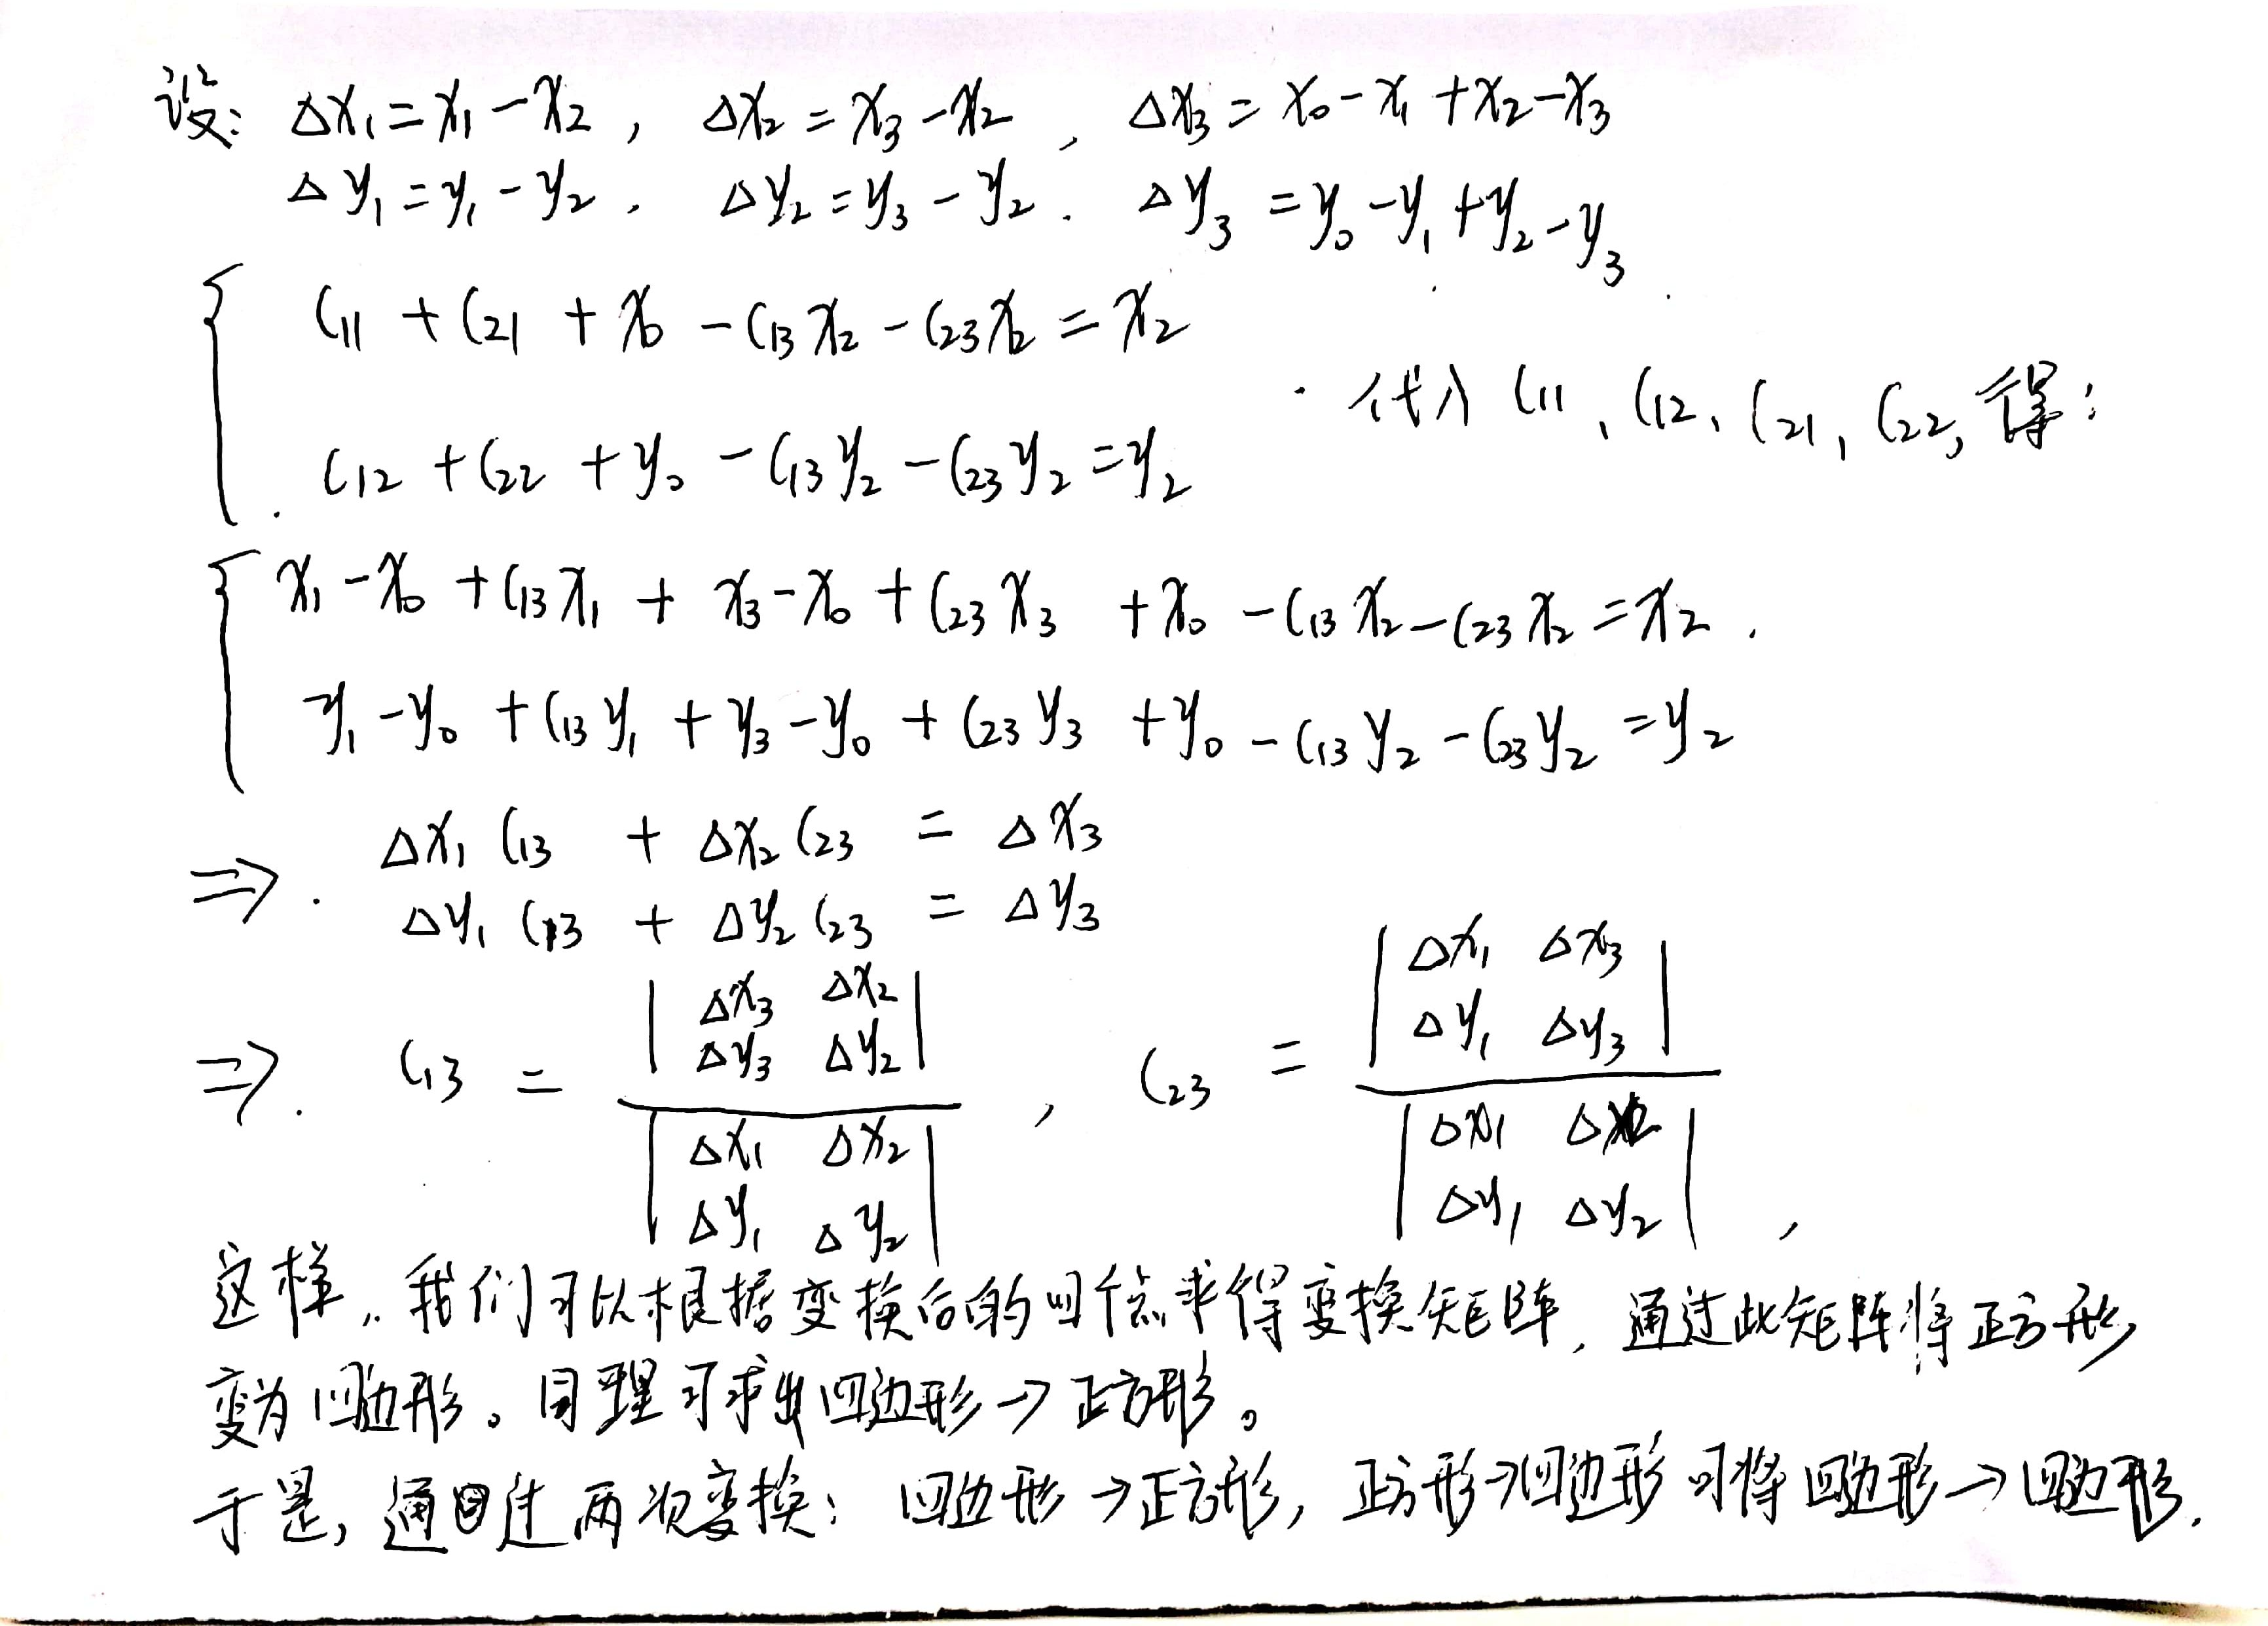 设: Δx₁=x₁-x₂, Δx₂=x₃-x₂, Δx₃=x₀-x₁+x₂-x₃
Δy₁=y₁-y₂, Δy₂=y₃-y₂. Δy₃=y₀-y₁+y₂-y₃
C₁₁+C₂₁+x₀-C₁₃x₂-C₂₃x₂=x₂
代入C₁₁、C₁₂、C₂₁,C₂₂,得:
C₁₂+C₂₂+y₀-C₁₃y₂-C₂₃y₂=y₂
x₁-x₀+C₁₃x₁+x₃-x₀+C₂₃x₃+x₀-C₁₃x₂-C₂₃x₂=x₂.
y₁-y₀+C₁₃y₁+y₃-y₀+C₂₃y₃+y₀-C₁₃y₂-C₂₃y₂=y₂
⇒. Δx₁C₁₃+Δx₂C₂₃=Δx₃
Δy₁C₁₃+Δy₂C₂₃=Δy₃
⇒. C₁₃=
|Δx₃ Δx₂|
|Δy₃ Δy₂|
|Δx₁ Δx₂|
|Δy₁ Δy₂|
, C₂₃=
|Δx₁ Δx₃|
|Δy₁ Δy₃|
|Δx₁ Δx₂|
|Δy₁ Δy₂|,
这样,我们可以根据变换后的四个点求得变换矩阵,通过此矩阵将正方形
变为四边形。同理可求出四边形→正方形。
于是,通过两次变换:四边形→正方形,正方形→四边形可将四边形→四边形.